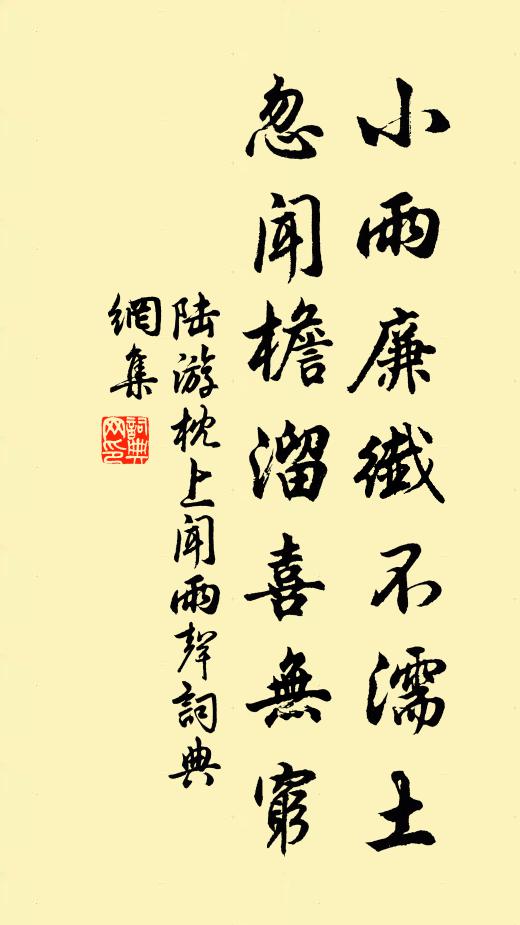 小雨廉纖不濡土
忽聞檐溜喜無窮
陆游枕上闻雨聲詞典
網集
詞典网印